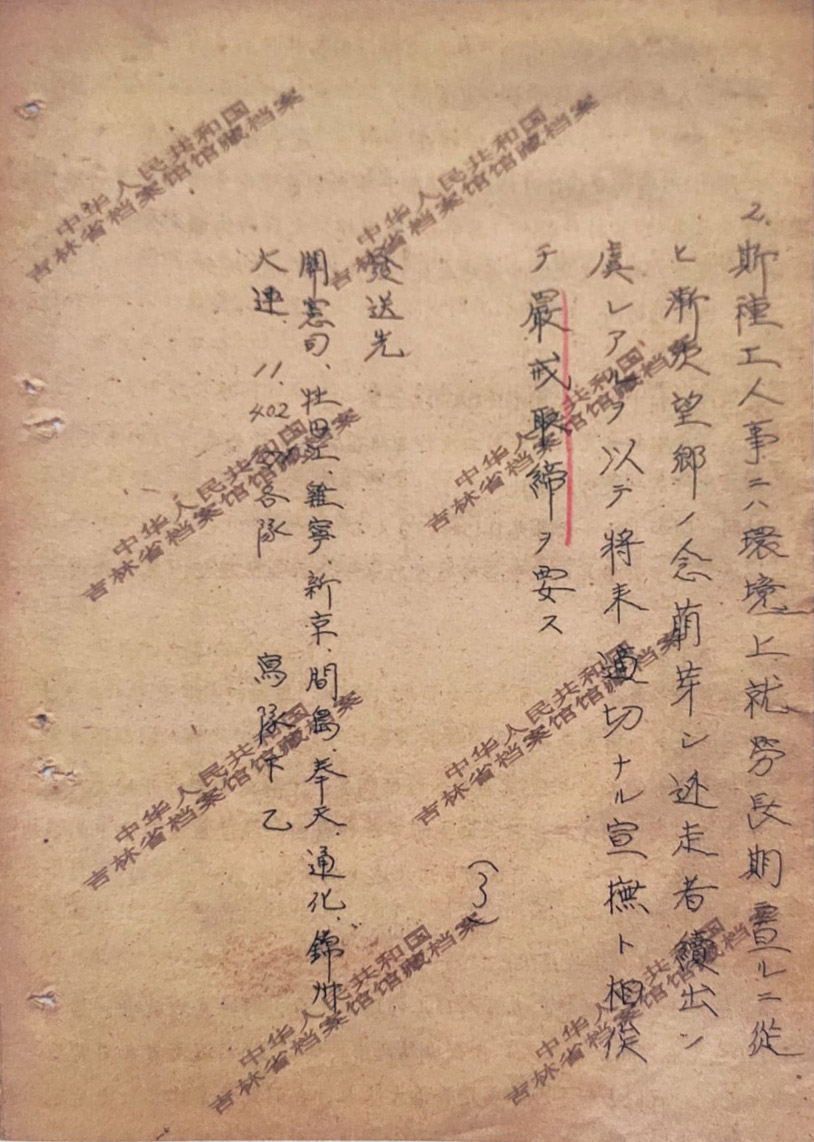 2. 斯種工人事ニハ環境上就労長期ニ亘ルニ従
ヒ漸次望郷ノ念萌芽シ逃走者續出ノ
虞レアルヲ以テ将来適切ナル宣撫ト相俟
テ嚴戒取締ヲ要ス
(了)
發送先
関憲司、牡丹江、雞寧、新京、間島、奉天、通化、錦州
大連、11、402 各隊 寫 隊下乙
中华人民共和国
吉林省档案馆馆藏档案
中华人民共和国
吉林省档案馆馆藏档案
中华人民共和国
吉林省档案馆馆藏档案
中华人民共和国
吉林省档案馆馆藏档案
中华人民共和国
吉林省档案馆馆藏档案
中华人民共和国
吉林省档案馆馆藏档案
中华人民共和国
吉林省档案馆馆藏档案
中华人民共和国
吉林省档案馆馆藏档案